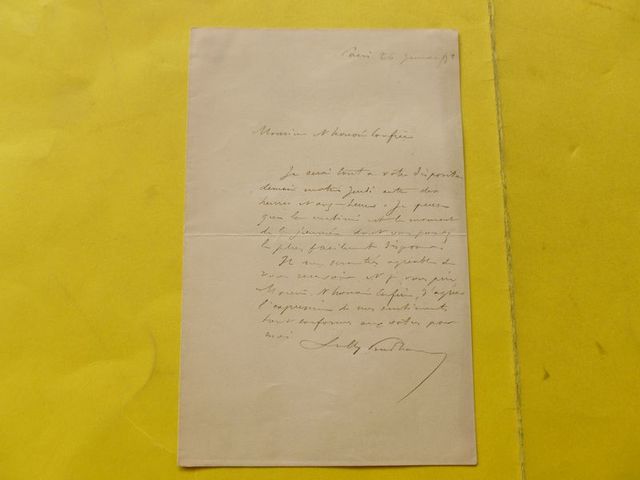 Paris
Monsieur et honoré Confrère
Je serai tout à votre disposition
demain matin jeudi entre dix
heures et onze heures. Je pense
que la matinée est le moment
de la journée dont vous pouvez
le plus facilement disposer.
Il me sera très agréable de
vous recevoir et je vous prie,
Monsieur et honoré Confrère, d'agréer
l'expression de mes sentiments
tout conformes aux vôtres pour
moi
Sully Prudhomme